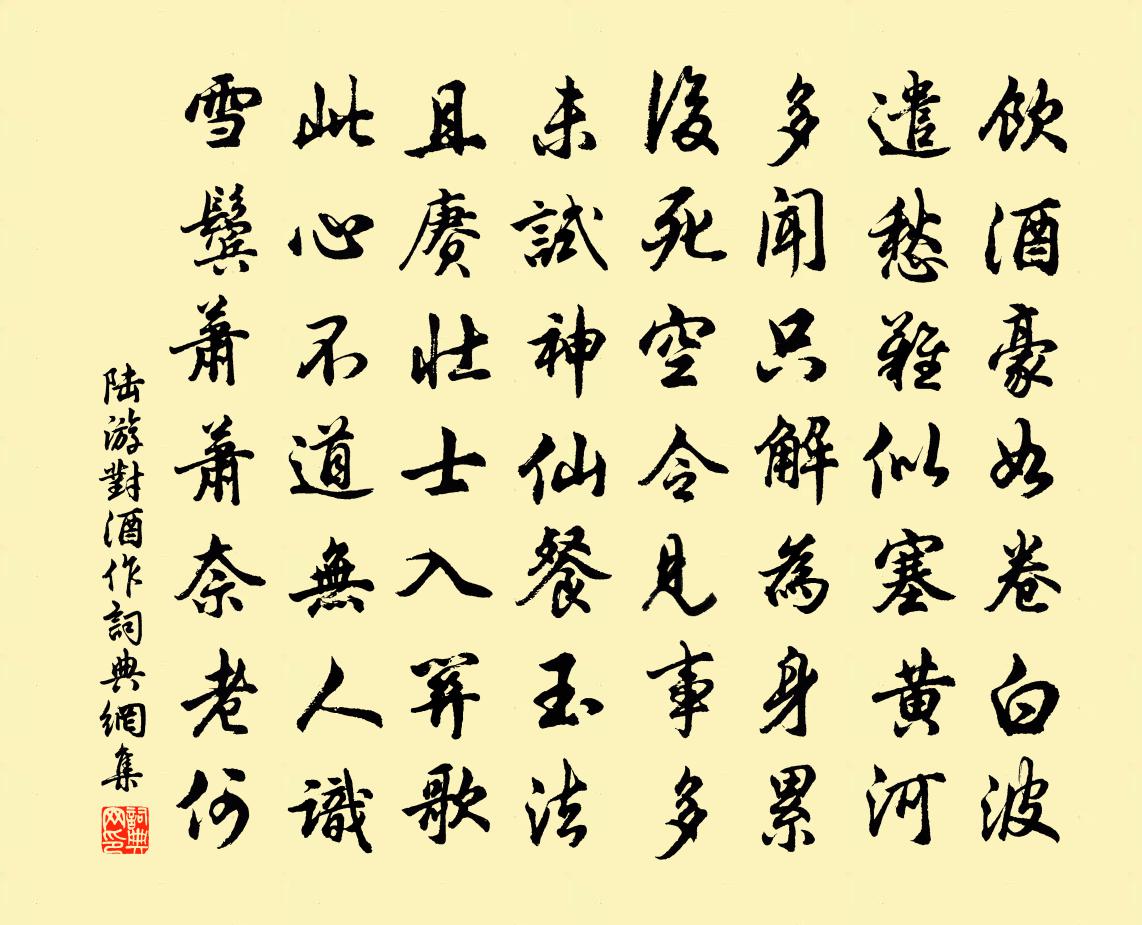 飲酒豪如卷白波
遣愁難似塞黃河
多聞只解為身累
後死空令見事多
未試神仙餐玉法
且賡壯士入關歌
此心不道無人識
雪鬢蕭蕭奈老何
陆游對酒作詞典網集
詞典网印